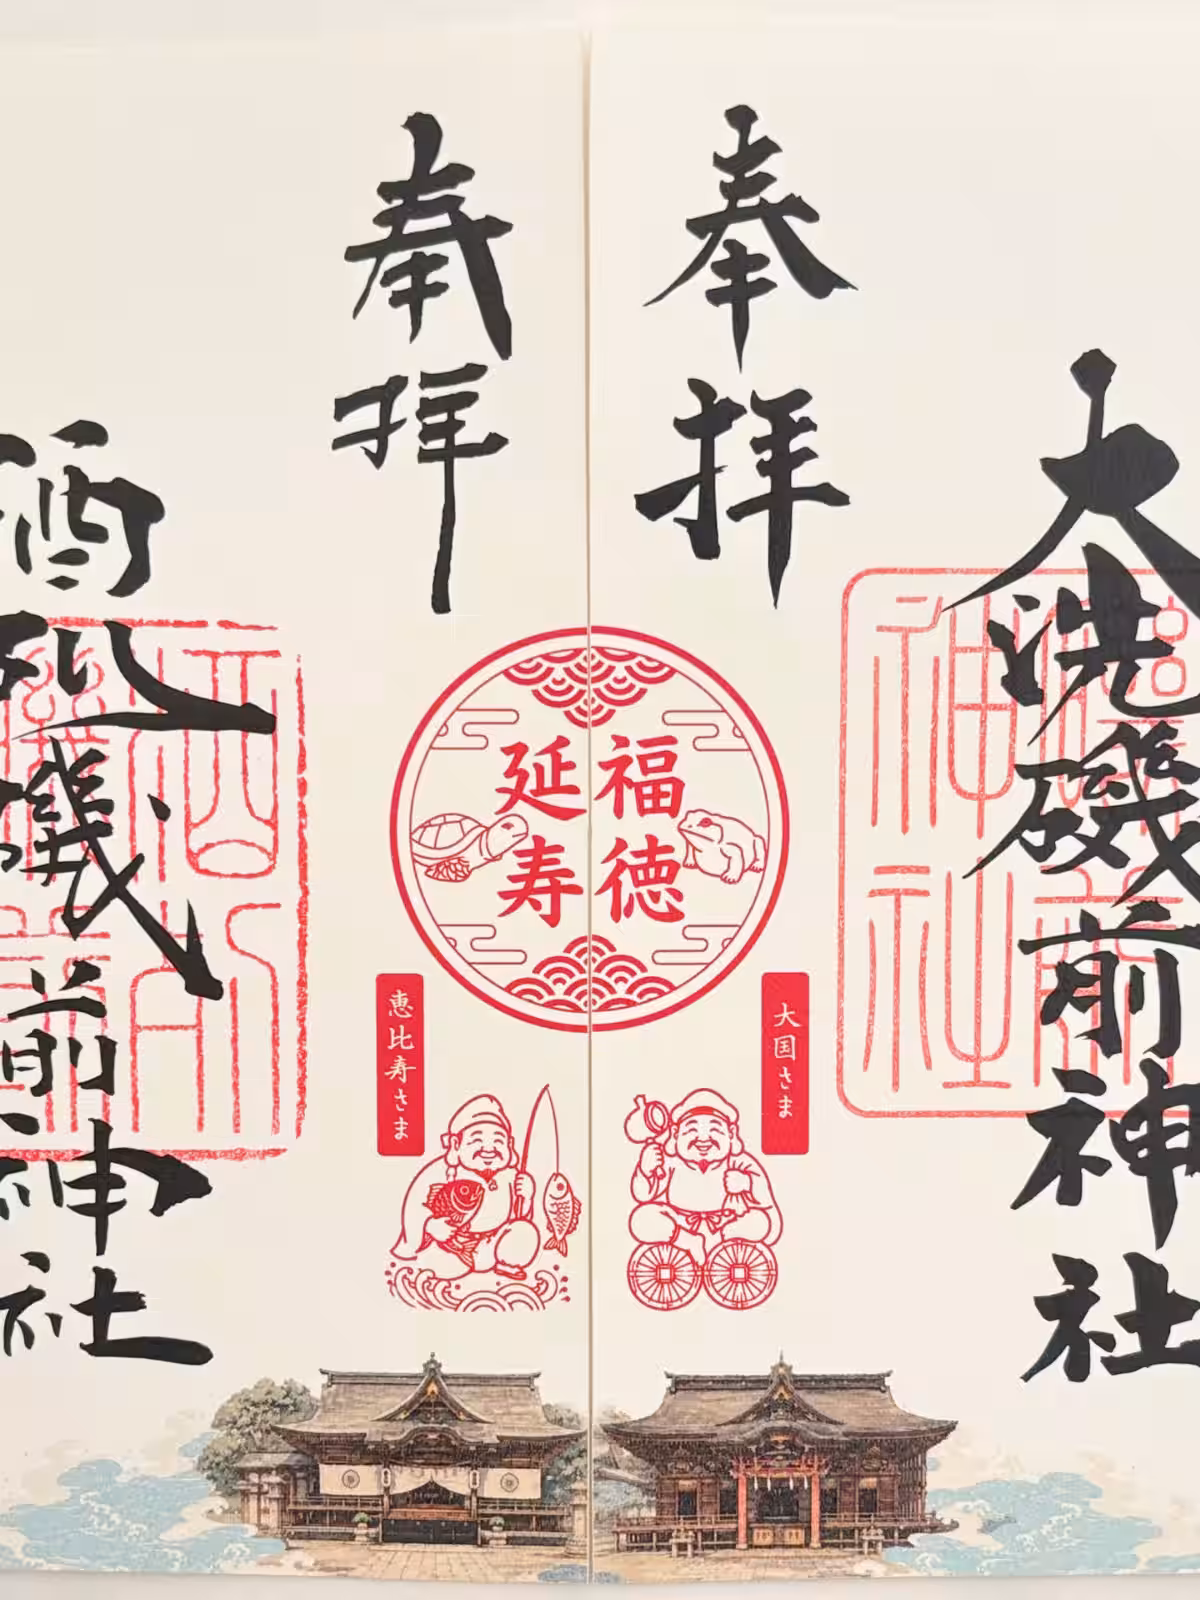 奉拝
大洗磯前神社
福徳
延寿
大国さま
奉拝
酒列磯前神社
恵比寿さま